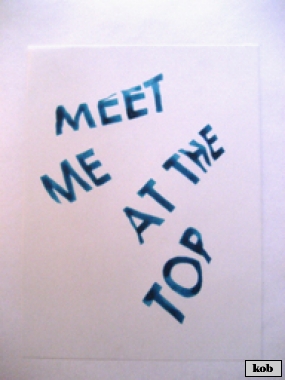 MEET
ME
AT THE
TOP
kob